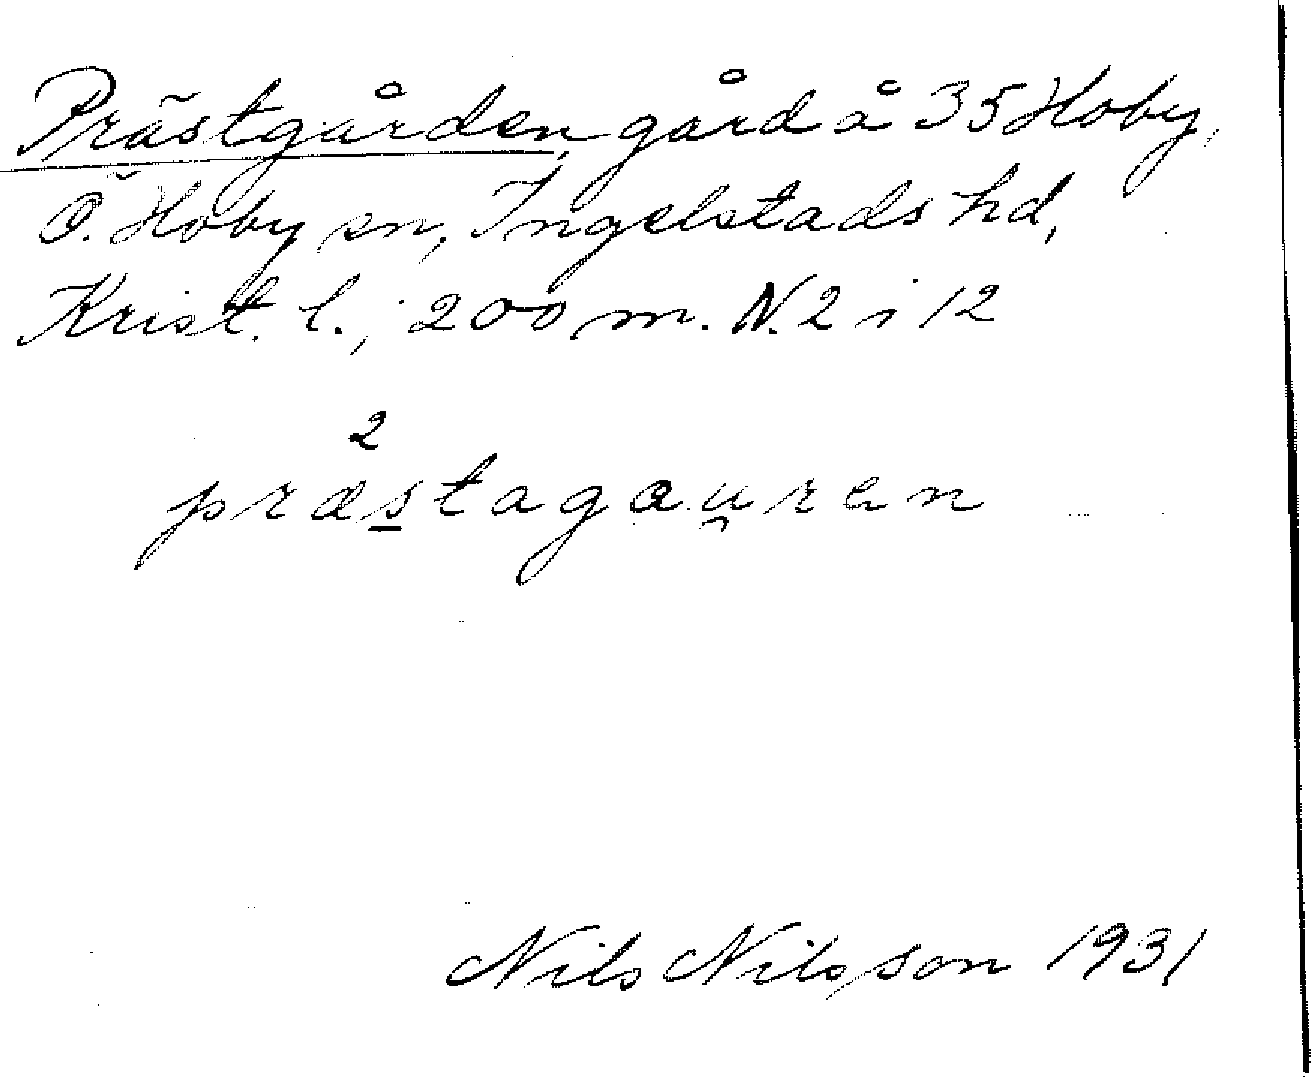 Prästgården, gård å 35 Hoby,
Ö. Hoby sn, Ingelstads hd,
Krist. l.; 200 m. N. 2 i 12
2
præs̲tagau̯ren
Nils Nilsson 1931